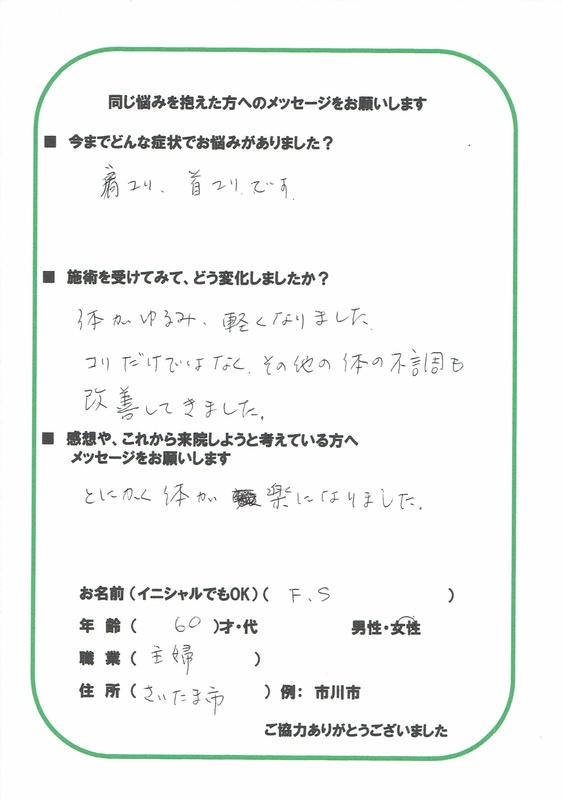 同じ悩みを抱えた方へのメッセージをお願いします
■ 今までどんな症状でお悩みがありました？
肩コリ、首コリ、です。
■ 施術を受けてみて、どう変化しましたか？
体がゆるみ、軽くなりました。
コリだけではなく、その他の体の不調も
改善してきました。
■ 感想や、これから来院しようと考えている方へ
メッセージをお願いします
とにかく体が楽になりました。
お名前（イニシャルでもOK）（ F、S ）
年 齢（ 60 ）才・代 男性・女性
職 業（ 主婦 ）
住 所（ さいたま市 ）例： 市川市
ご協力ありがとうございました